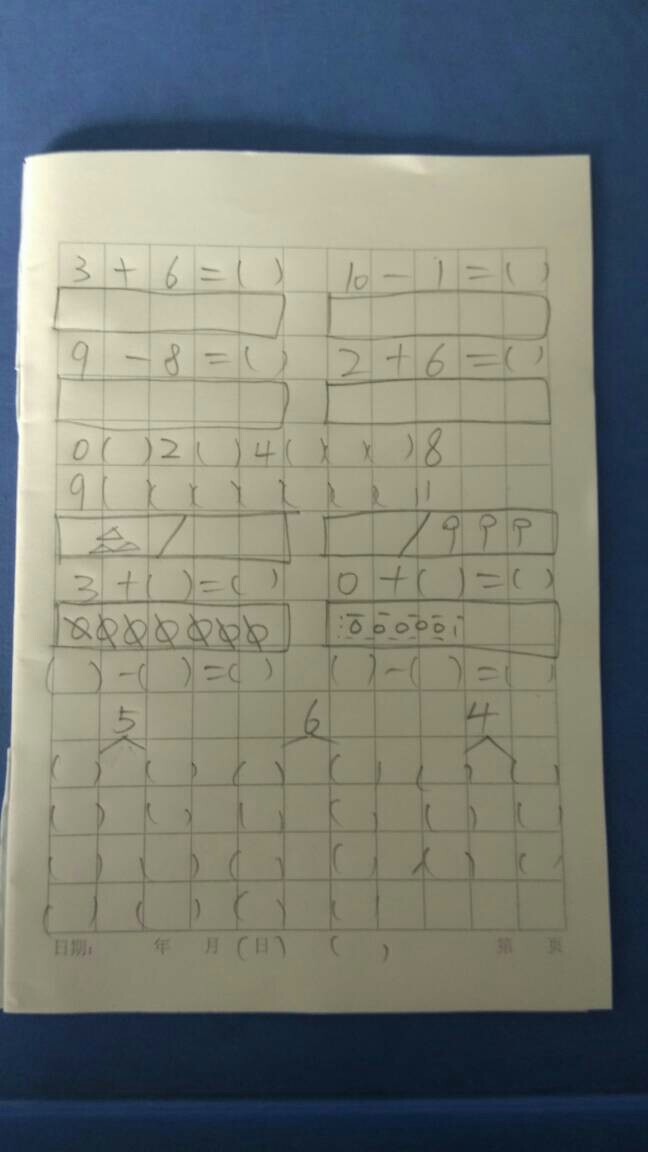 3 + 6 = ( ) 10 - 1 = ( )
9 - 8 = ( ) 2 + 6 = ( )
0 ( ) 2 ( ) 4 ( ) ( ) 8
9 ( ) ( ) ( ) ( ) ( ) ( ) 11
3 + ( ) = ( ) 0 + ( ) = ( )
( ) - ( ) = ( ) ( ) - ( ) = ( )
5 6 4
( ) ( ) ( ) ( ) ( ) ( )
( ) ( ) ( ) ( ) ( ) ( )
( ) ( ) ( ) ( ) ( ) ( )
( ) ( ) ( ) ( )
日期: 年 月 (日) ( ) 第 页